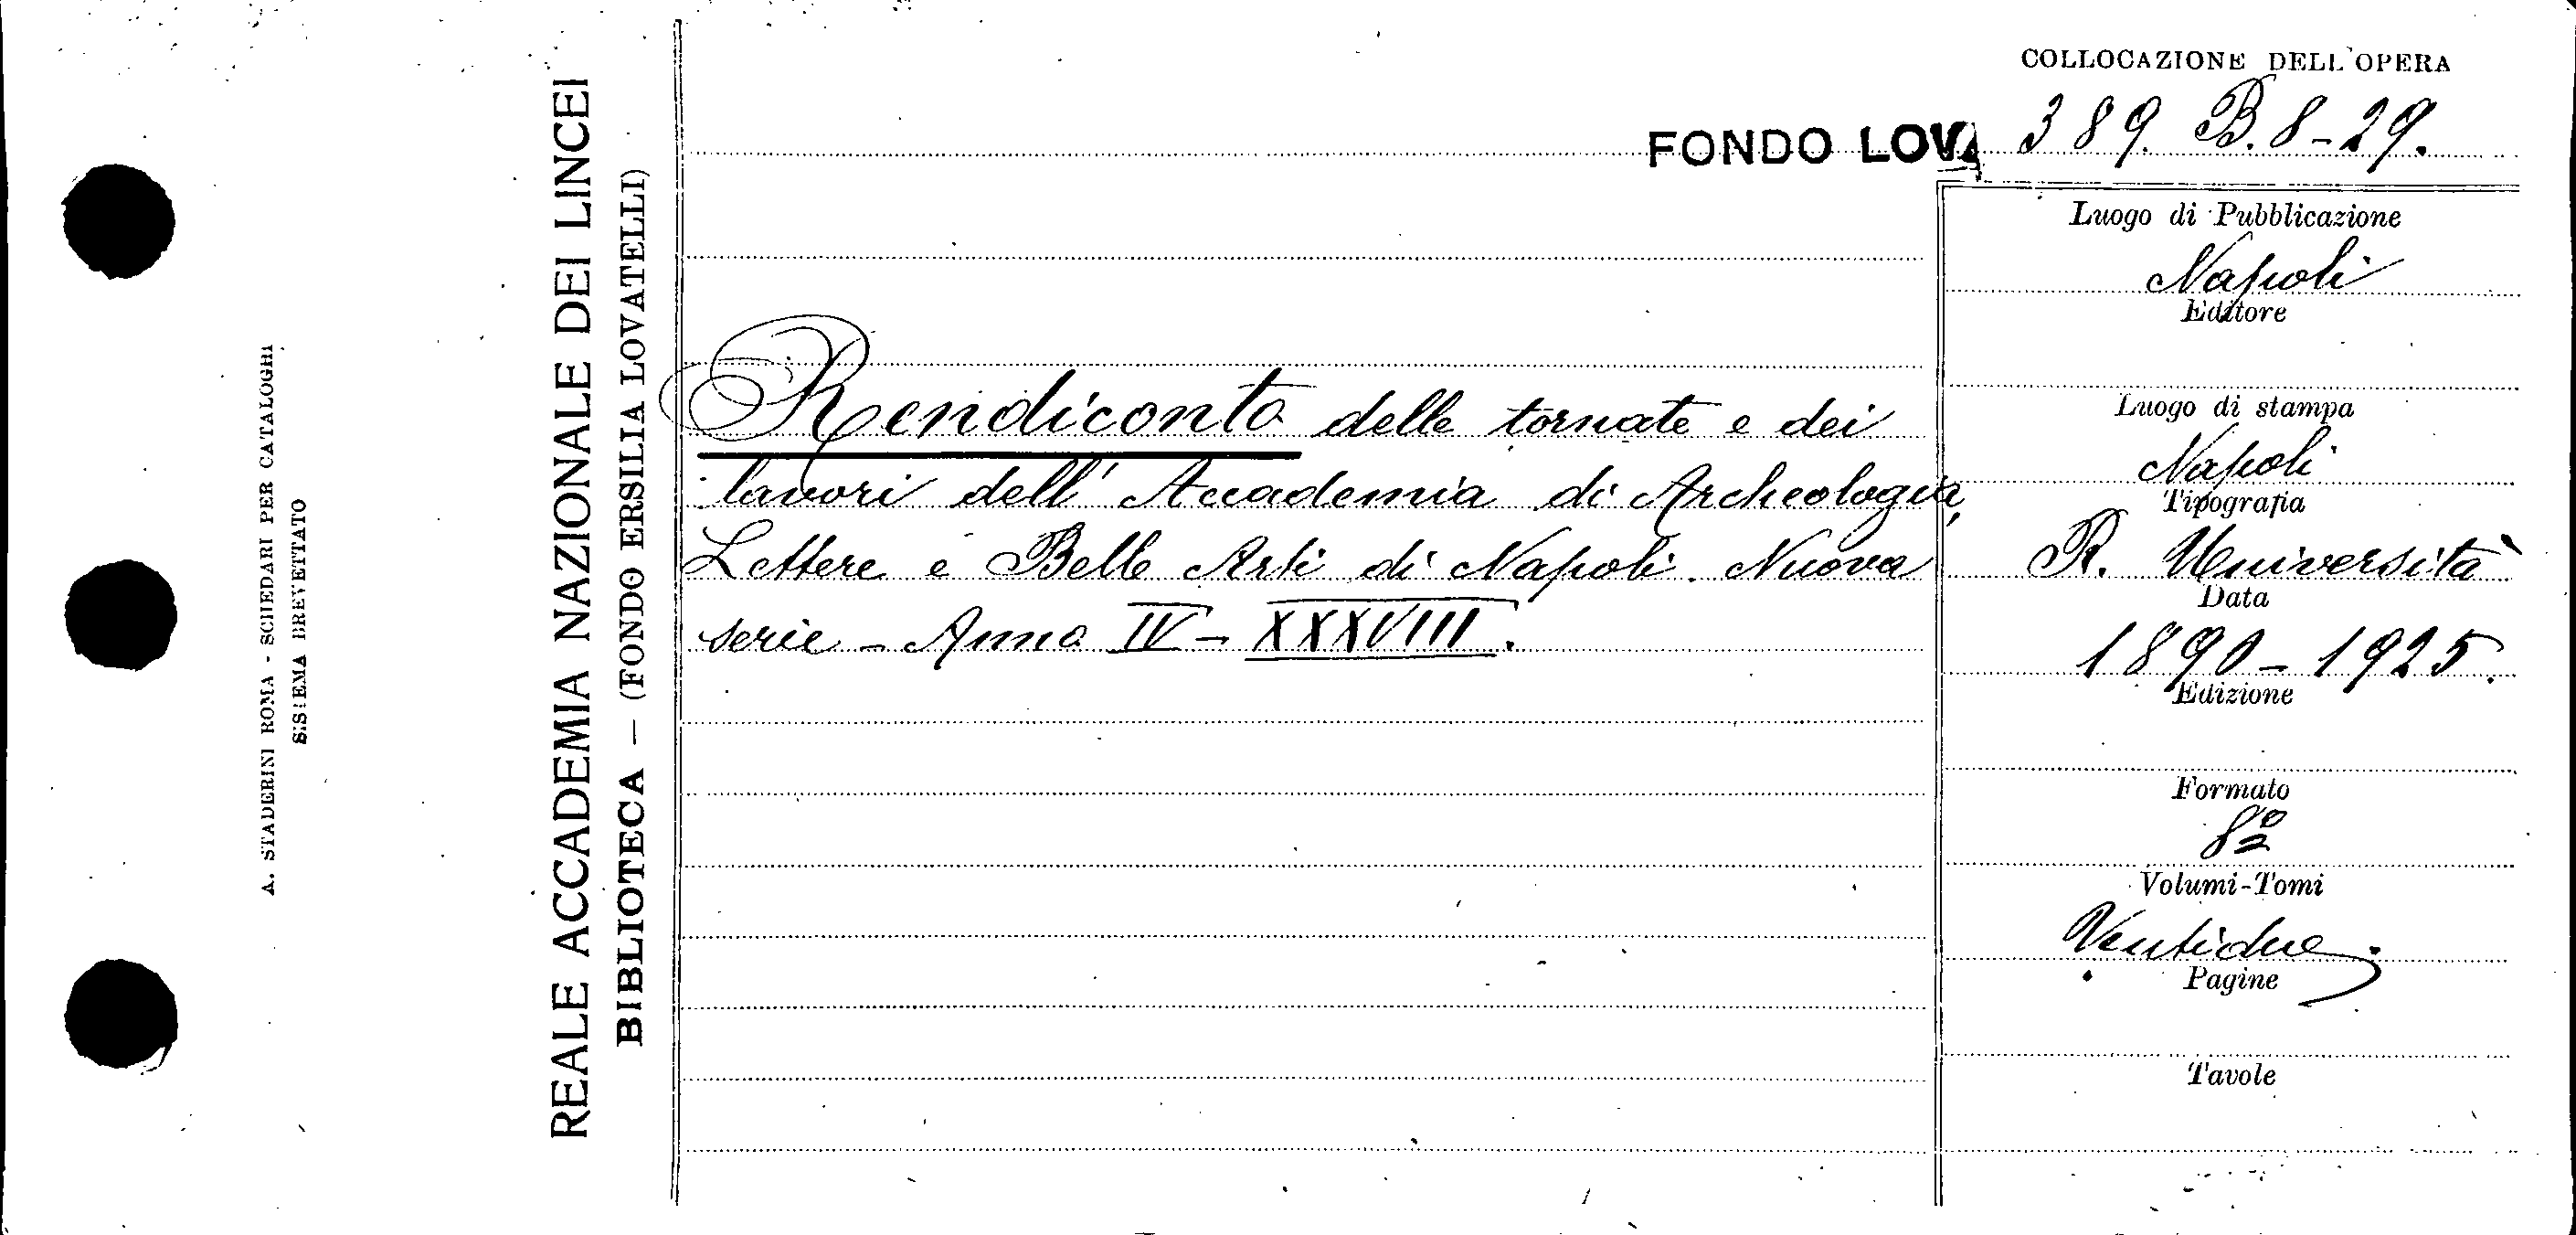 A. STADERINI ROMA - SCHEDARI PER CATALOGHI
SISTEMA BREVETTATO
REALE ACCADEMIA NAZIONALE DEI LINCEI
BIBLIOTECA — (FONDO ERSILIA LOVATELLI)
COLLOCAZIONE DELL'OPERA
FONDO LOVA 389. B. 8-29.
Rendiconto delle tornate e dei
lavori dell' Accademia di Archeologia,
Lettere e Belle Arti di Napoli. Nuova
serie - Anno IV - XXXVIII.
Luogo di Pubblicazione
Napoli
Editore
Luogo di stampa
Napoli
Tipografia
R. Università
Data
1890-1925.
Edizione
Formato
8º
Volumi-Tomi
Ventidue
Pagine
Tavole